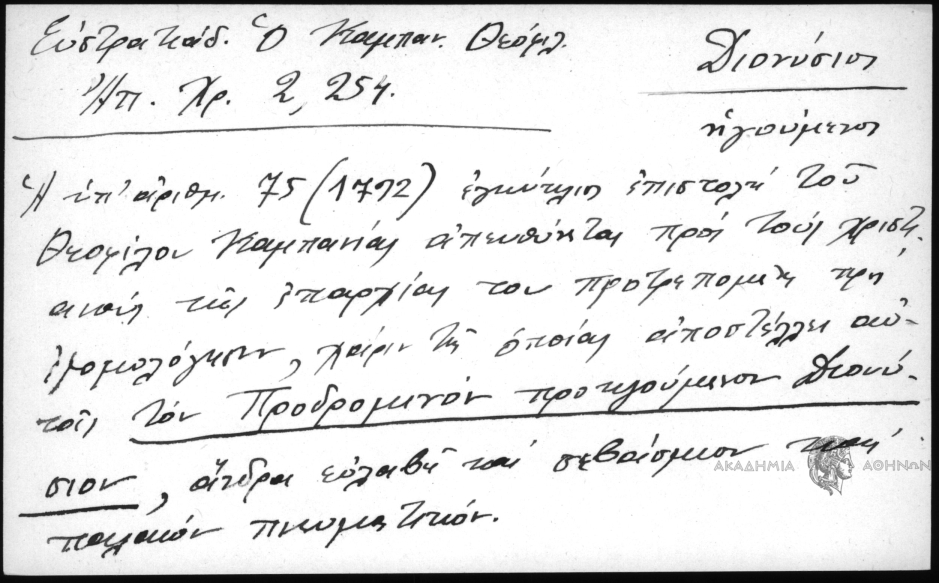 Εὐστρατιάδ. Ὁ Καμπαν. Θεόφιλ.
Διονύσιος
Ἅπ. Χρ. 2, 254.
ἡγούμενος
Ἡ ὑπ' ἀριθμ. 75 (1792) ἐγκύκλιος ἐπιστολὴ τοῦ
Θεοφίλου Καμπανίας ἀπευθύνεται πρὸς τοὺς χριστι-
ανοὺς τῆς ἐπαρχίας του προτρεπομένη πρὸς
ἐξομολόγησιν, χάριν τῆς ὁποίας ἀποστέλλει αὐ-
τοῖς τὸν Προδρομινὸν προηγούμενον Διονύ-
σιον, ἄνδρα εὐλαβῆ καὶ σεβάσμιον καὶ
παλαιὸν πνευματικόν.
ΑΚΑΔΗΜΙΑ ΑΘΗΝΩΝ